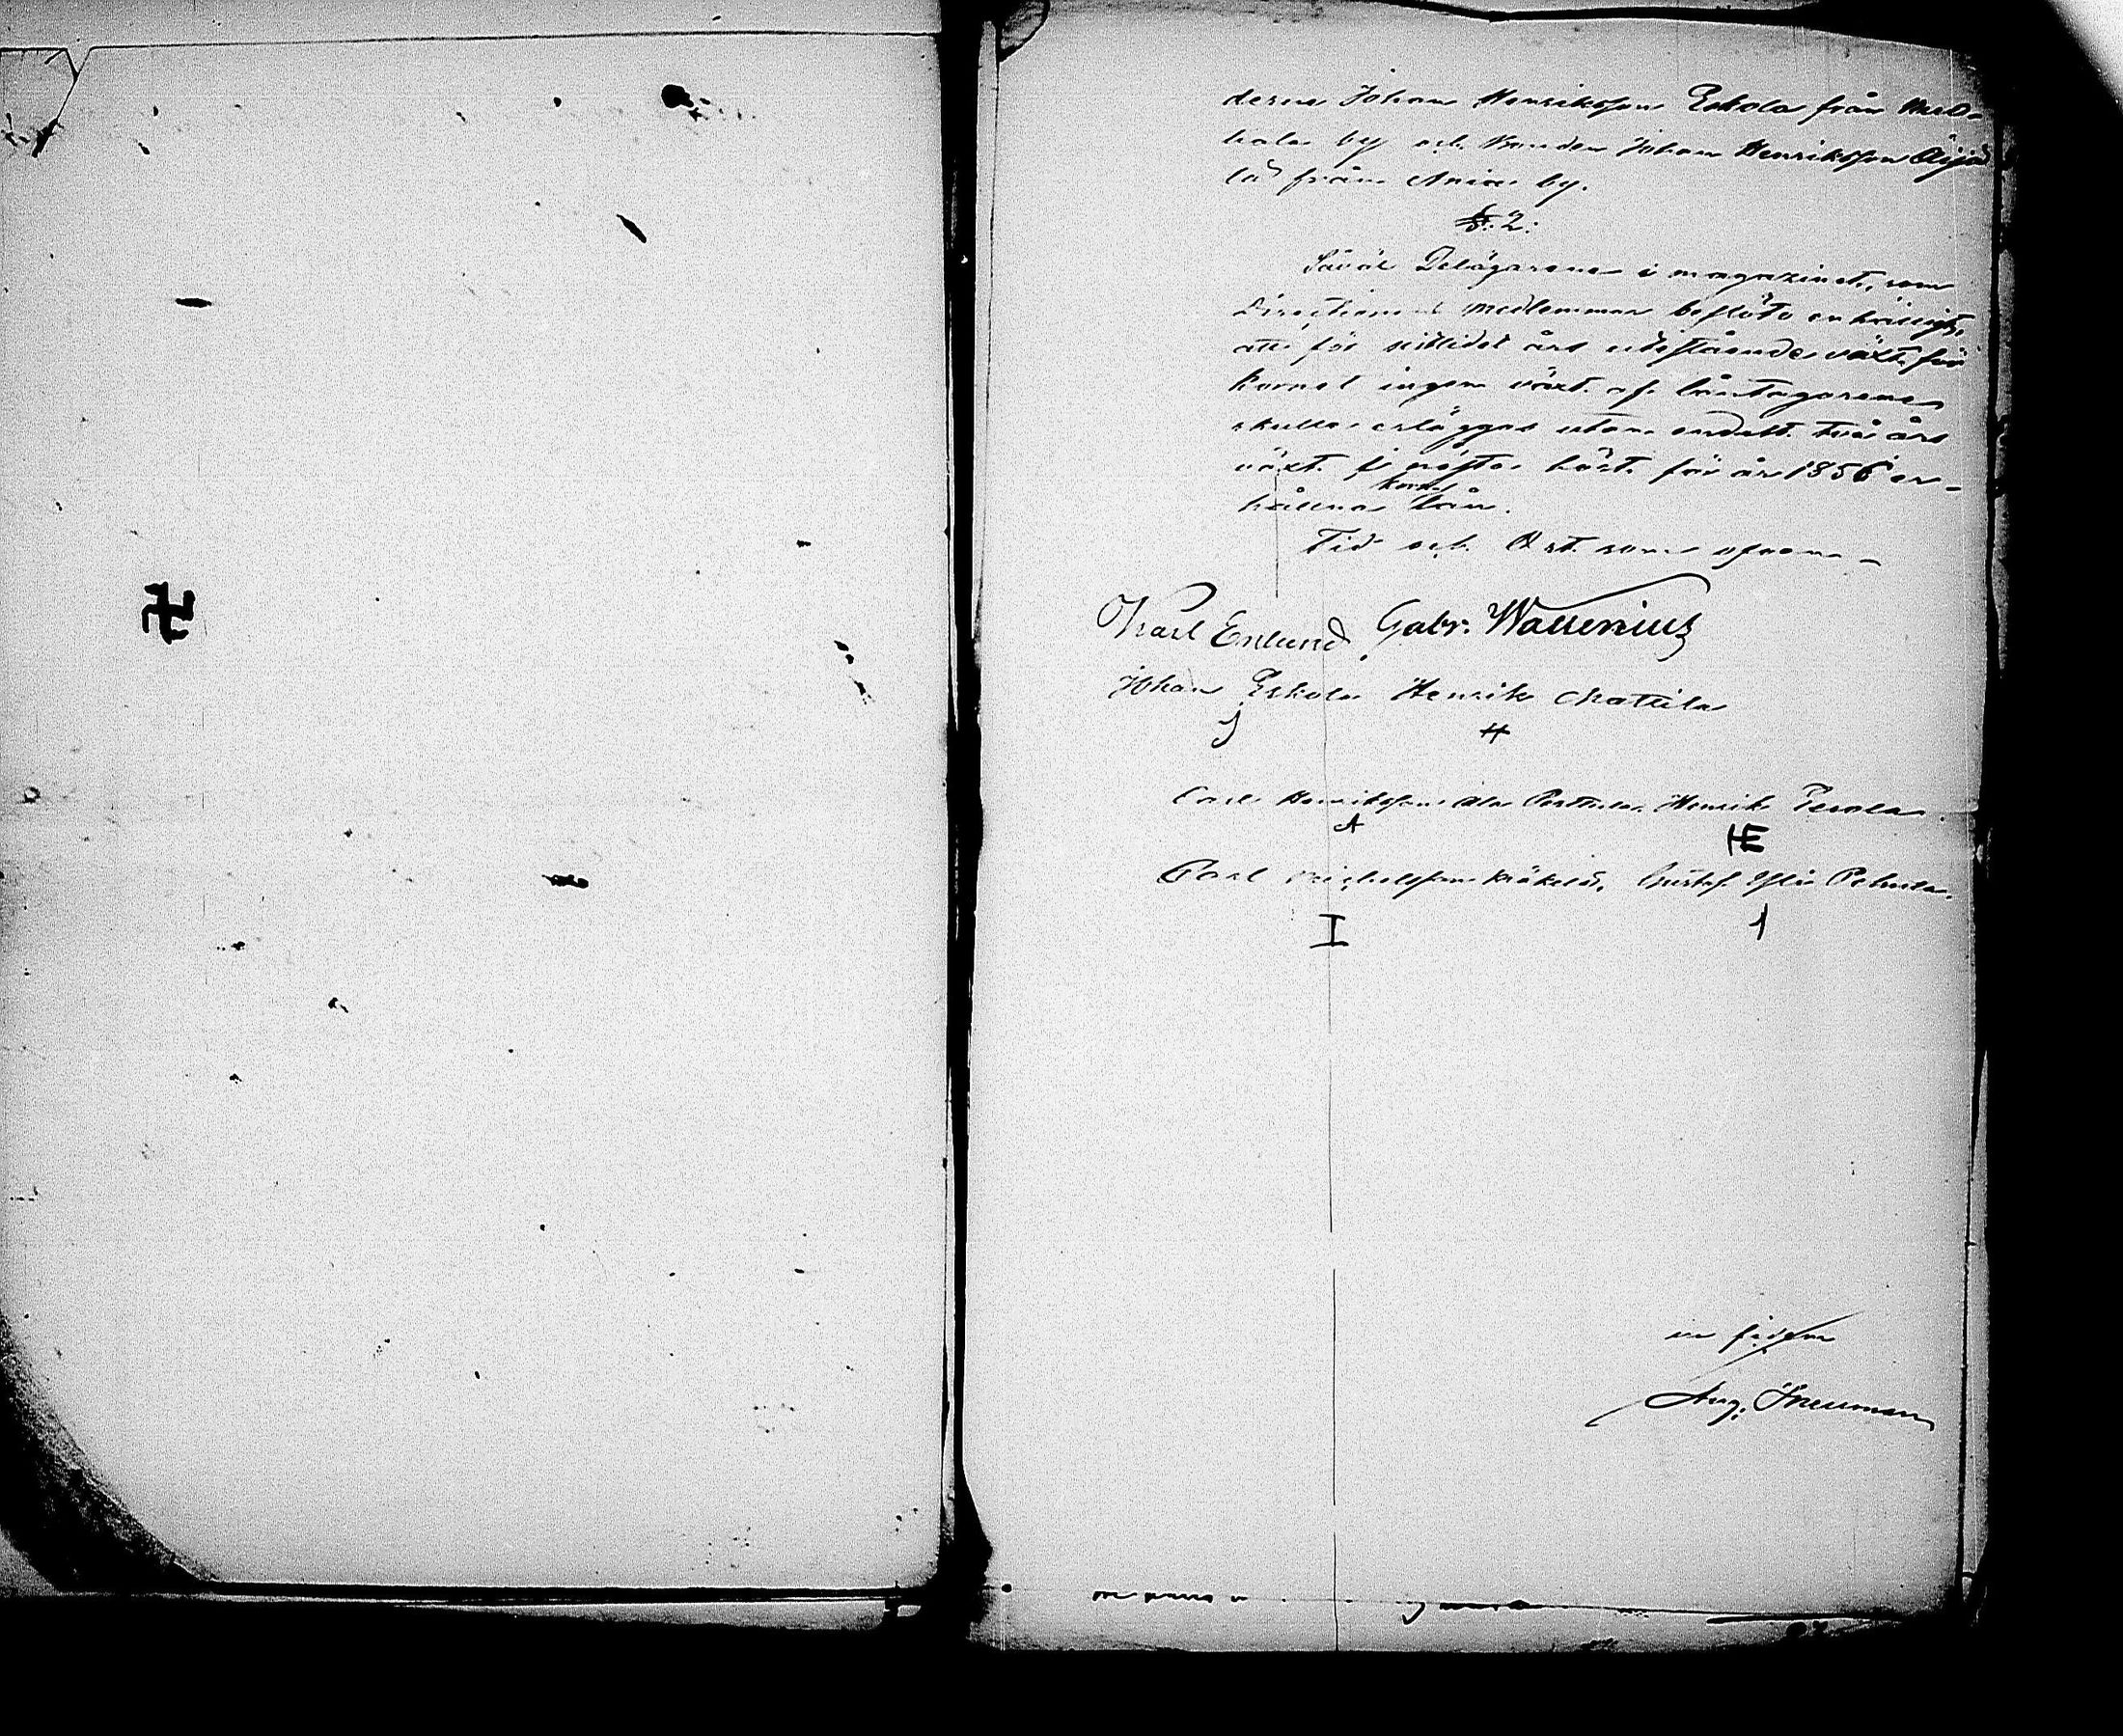 derne Johan Henriksson Eskola från
kala by och Bonden Johan Henriksson
la från Ania by.
§. 2.
Såväl Delägarene i magazinet, som
Directionens medlemmar beslöto enhälligt,
att för sistlidet års utestående växt för
kornet ingen växt af låntagarene
skulle erläggas utan endast två års
växt i nästa höst för år 1856 er-
hållna korn lån.
Tid och Ort som ofvan
Karl Enlund Gabr. Wallenius
Johan Eskola Henrik Mattila
J H
Carl Henriksson Ala Perttula Henrik Terola
A HE
Carl Michelsson Gustaf
I 1
in fidem
Aug. Sneuman